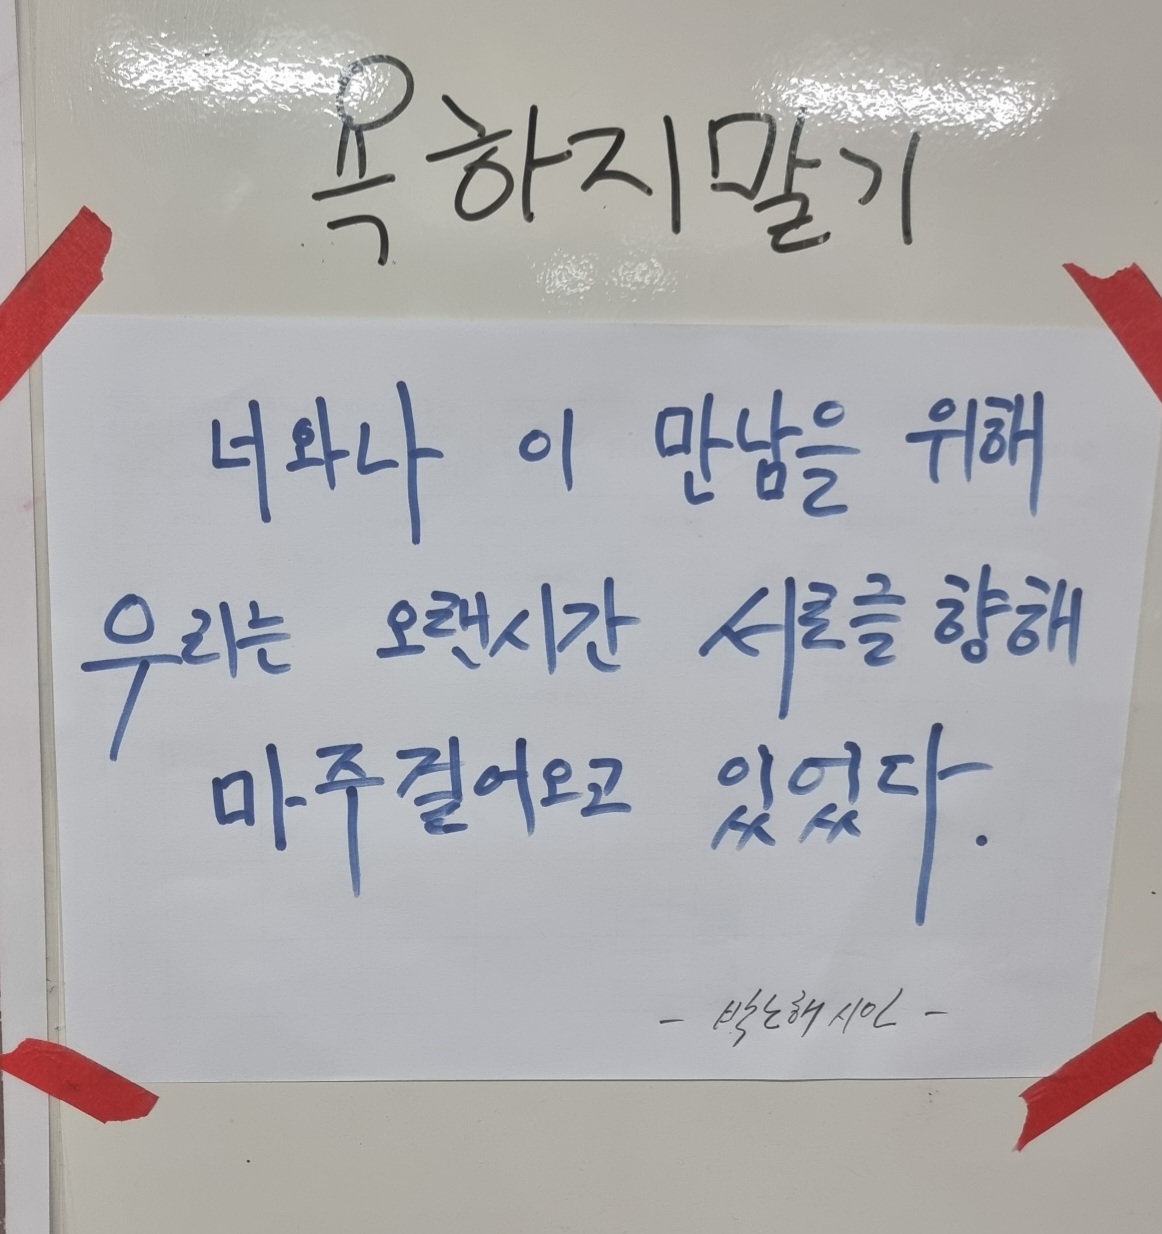 욕하지말기
너와나 이 만남을 위해
우리는 오랜시간 서로를 향해
마주걸어오고 있었다.
- 박노해 시인 -